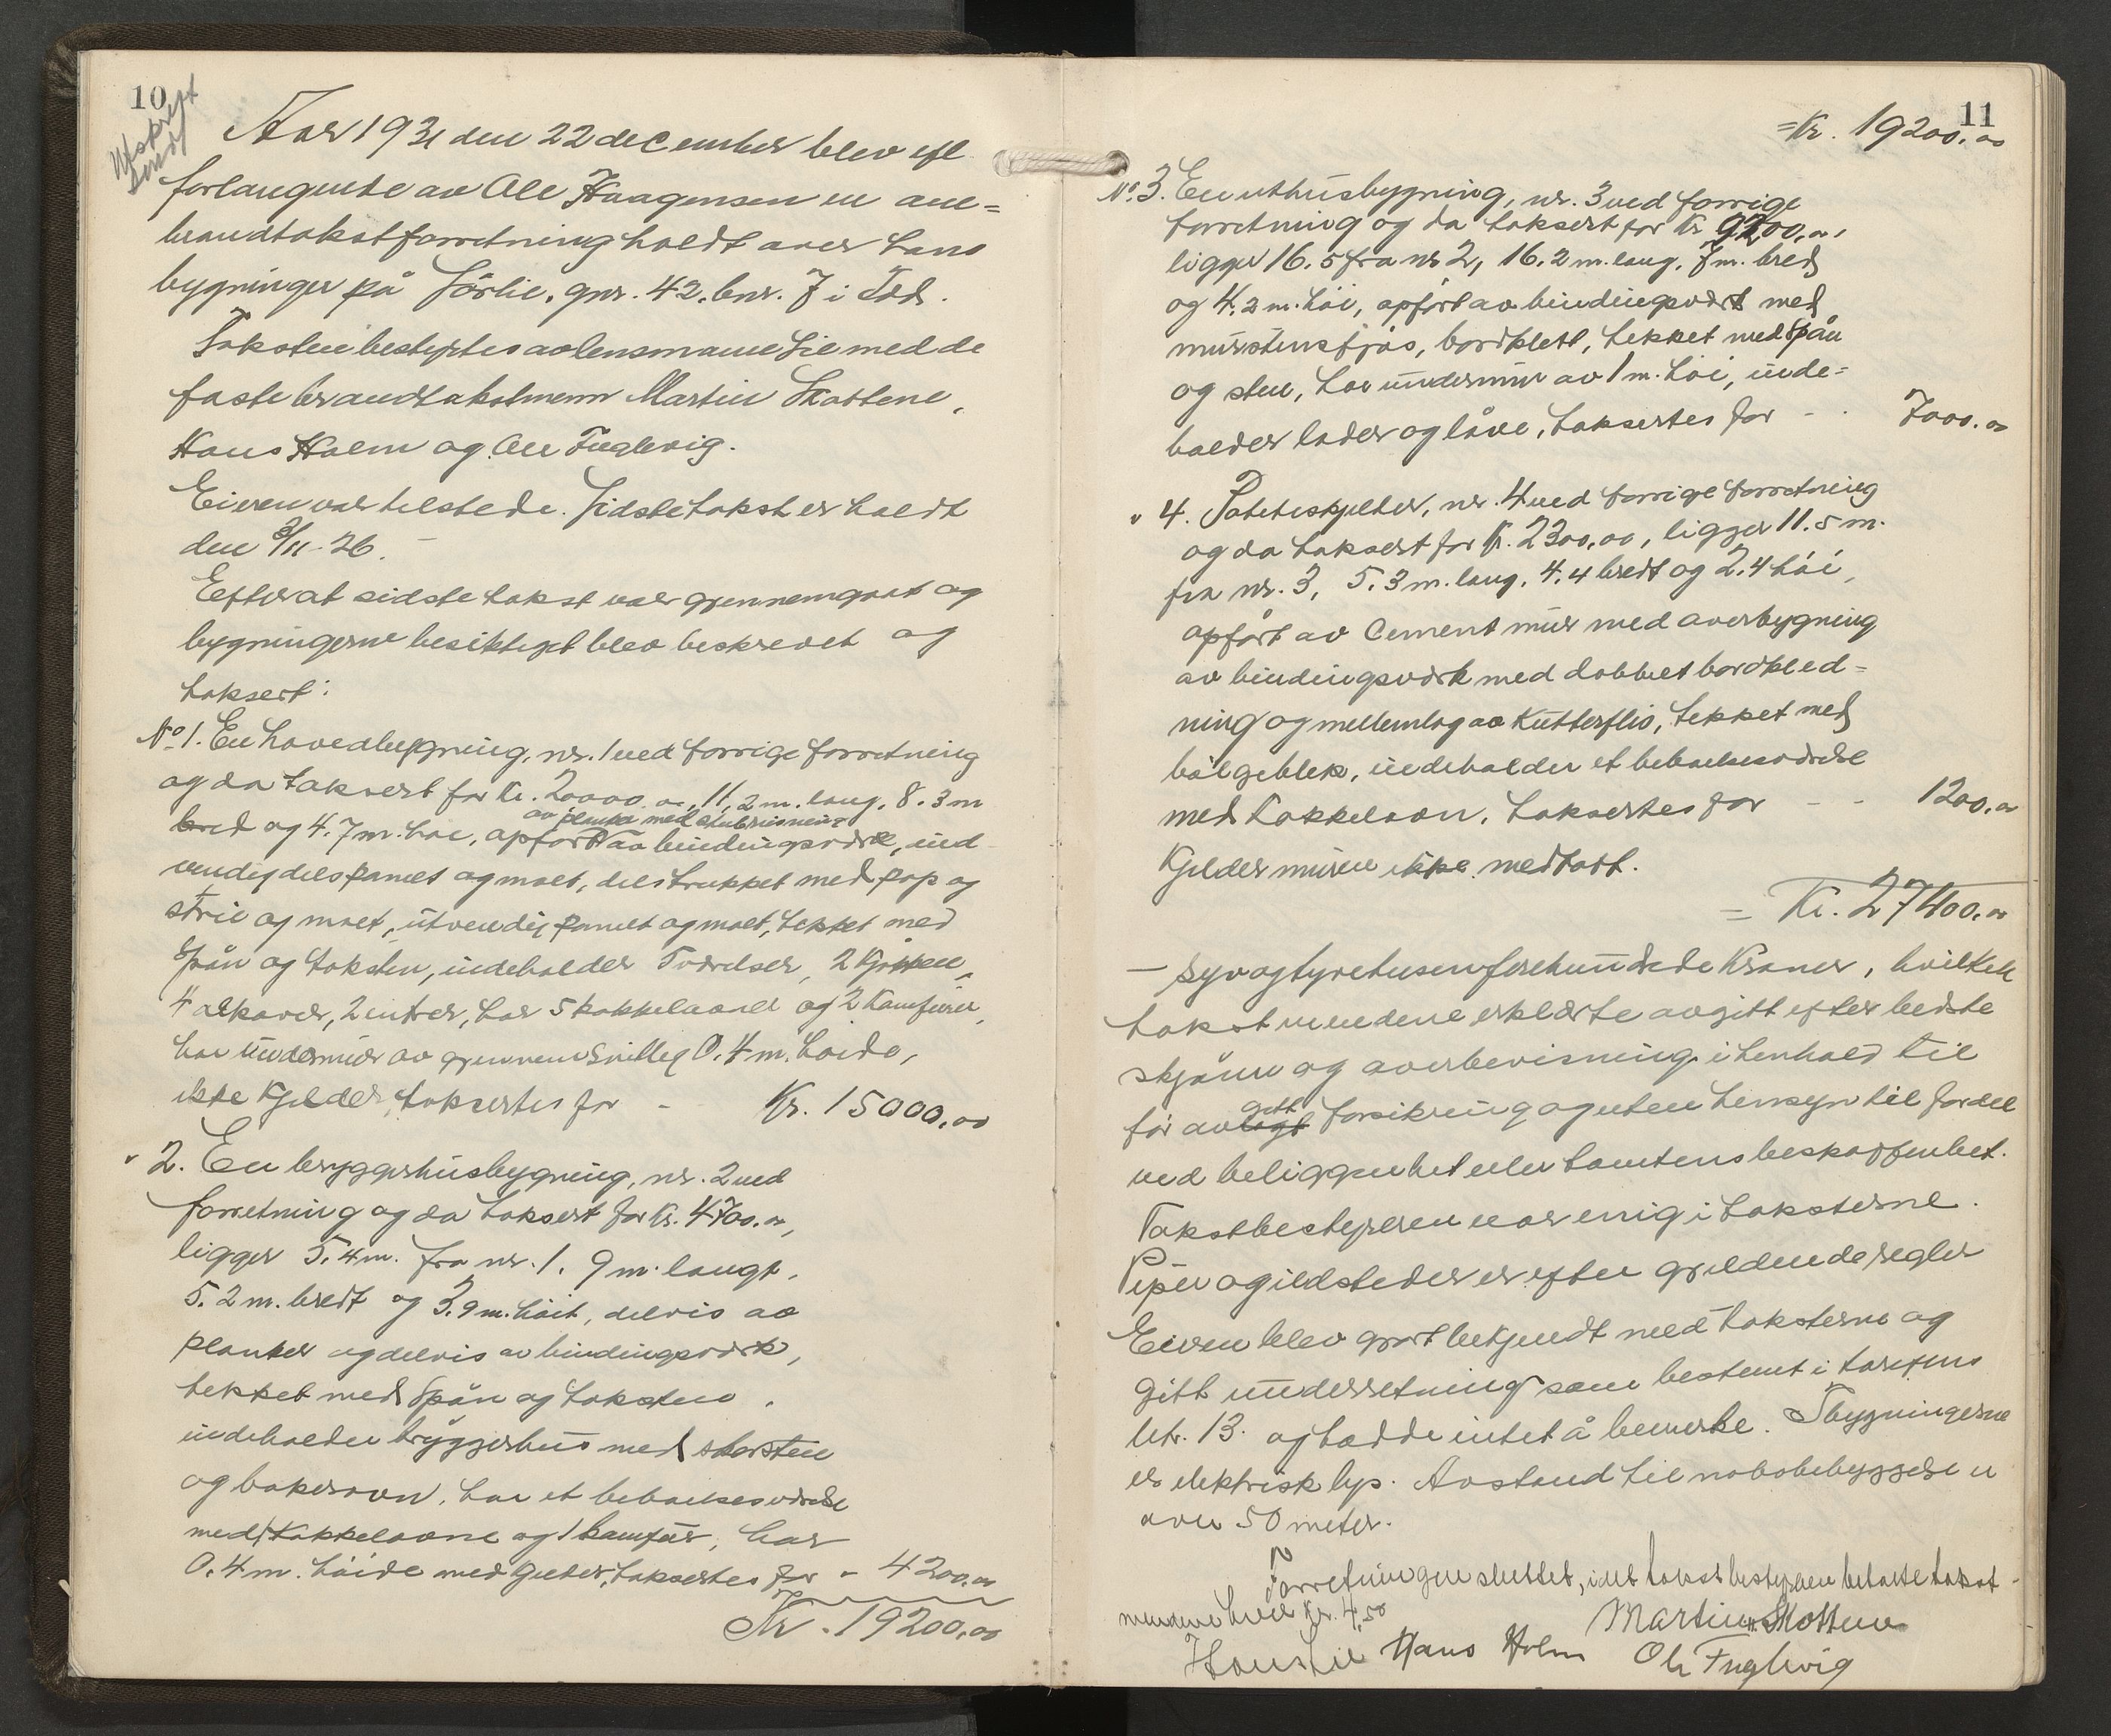 10
Utskrift
sendt
Aar 1931 den 22 december blev eft.
forlangende av Ole Haagensen en om=
brandtakstforretning holdt over hans
bygninger på Sörlie, gnr. 42, bnr. 7 i
Taksten bestyrtes av lensmann Lie med de
faste brandtakstmenn Martin Skottene,
Hans Holm og Ole Fuglevig.
Eieren var tilstede. Sidste takst er holdt
den 3/11-26. –
Efterat sidste takst var gjennemgaat og
bygningerne besiktiget blev beskrevet og
taksert:
No 1. En hovedbygning, nr. 1 ved forrige forretning
og da taksert for Kr. 20000.00, 11,2 m. lang, 8.3 m
av planke med
bred og 4.7 m. höi, opfört av bindingsverk, ind-
vendig dels panelt og malt, dels trukket med pap og
strie og malt, utvendig panelt og malt, tekket med
Spån og taksten, indeholder værelser, 2 kjökken,
4 alkover, 2 entreer, har 5 kakkelovner og 2 komfurer,
har undermur av gjennemsnitlig 0.4 m. höide,
ikke kjelder, taksertes for - Kr. 15000,00
" 2. En bryggerhusbygning, nr. 2 ved
forretning og da taksert for Kr. 4700.00,
ligger 5.4 m. fra nr. 1, 9 m. langt,
5.2 m. bredt og 3.9 m. höit, delvis av
planker og delvis av bindingsverk,
tekket med Spån og taksten,
indeholder bryggerhus med skorsten
og bakerovn, har et beboelsesværelse
med 1 kakkelovne og 1 komfur, har
0.4 m. höide med grunder, taksertes for - 4200.00
Kr. 19200,00
11
= Kr. 19200,00
No. 3. En uthusbygning, nr. 3 ved forrige
forretning og da taksert for Kr. 9200,00,
ligger 16.5 fra nr 2, 16.2 m. lang, 7 m. bred
og 4.2 m. höi, opfört av bindingsverk med
murstensfjös, bordklett, tekket med Spån
og sten, har undermur av 1 m. höi, inde=
holder lader og låve, taksertes for - - 7000.00
" 4. Poteteskjelder, nr. 4 ved forrige forretning
og da taksert for Kr. 2300,00, ligger 11.5 m.
fra nr. 3, 5.3 m. lang, 4.4 bredt og 2.4 höi,
opfört av Cement mur med overbygning
av bindingsverk med dobbelt bordkled=
ning og mellemlag av Kutterflis, tekket med
bölgeblek, indeholder et beboelsesværelse
med kakkelovn, taksertes for - - 1200.00
Kjelder muren ikke medtatt.
= Kr. 27400.00
– syvogtyvetusenfirehundrede Kroner, hvilken
takst mendene erklærte avgitt efter bedste
skjönn og overbevisning i henhold til
gitt
för avlagt forsikring og uten hensyn til fordel
ved beliggenhet eller tomtens beskaffenhet.
Takstbestyreren var enig i taksterne.
Piper og ildsteder er efter gjeldende regler
Eieren blev gjort bekjendt med taksterne og
gitt underretning som bestemt i tarifens
litr. 13. og hadde intet å bemerke. I bygningerne
er elektrisk lys. Avstand til nabobebyggelse er
over 50 meter.
Forretningen sluttet, idet takstbestyreren betalte takst-
mendene hver Kr. 4,50
Martin Skotten
Hans Lie Hans Holm Ole Fuglevig